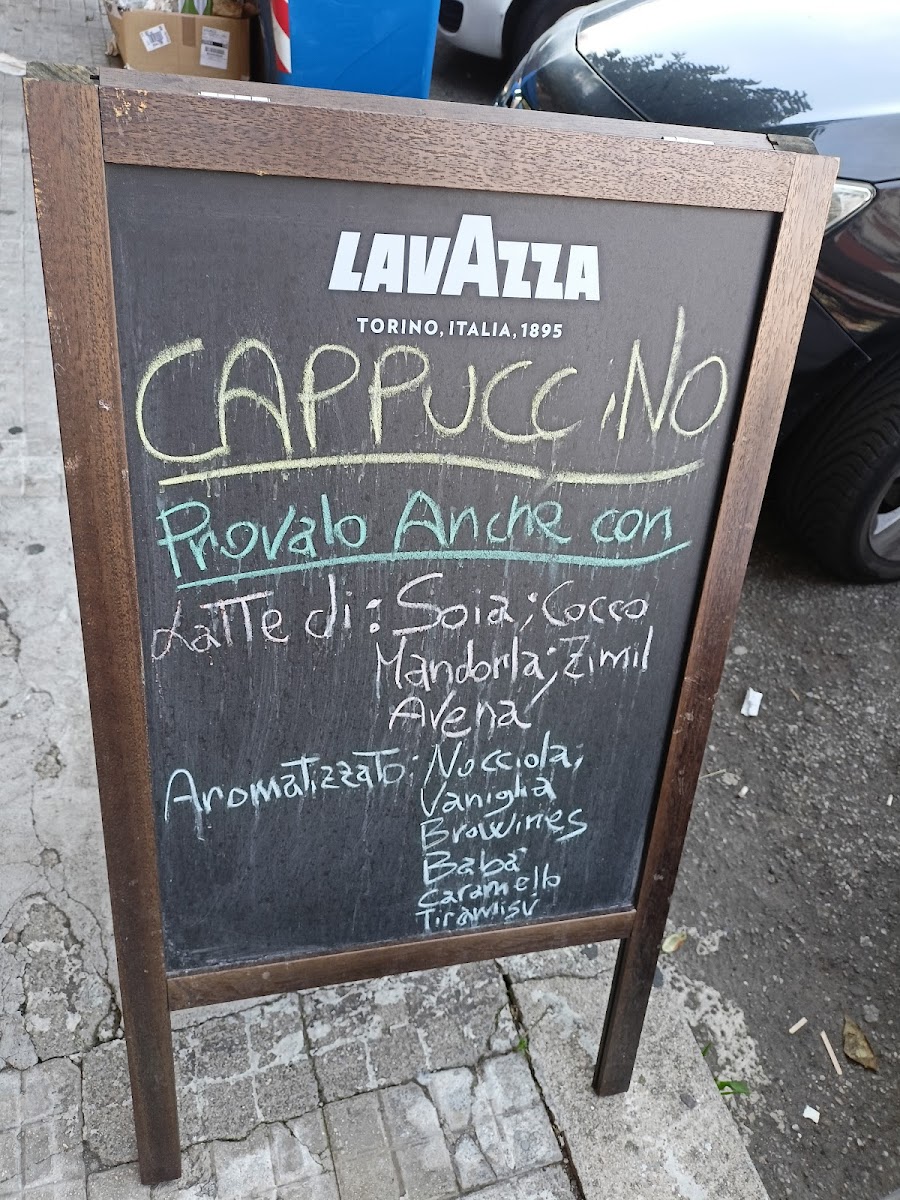 LAVAZZA
TORINO, ITALIA, 1895
CAPPUCCiNO
Provalo Anche con
Latte di: Soia; Cocco
Mandorla; Zimil
Avena
Aromatizzato: Nocciola;
Vaniglia
Browines
Babà
caramello
Tiramisù